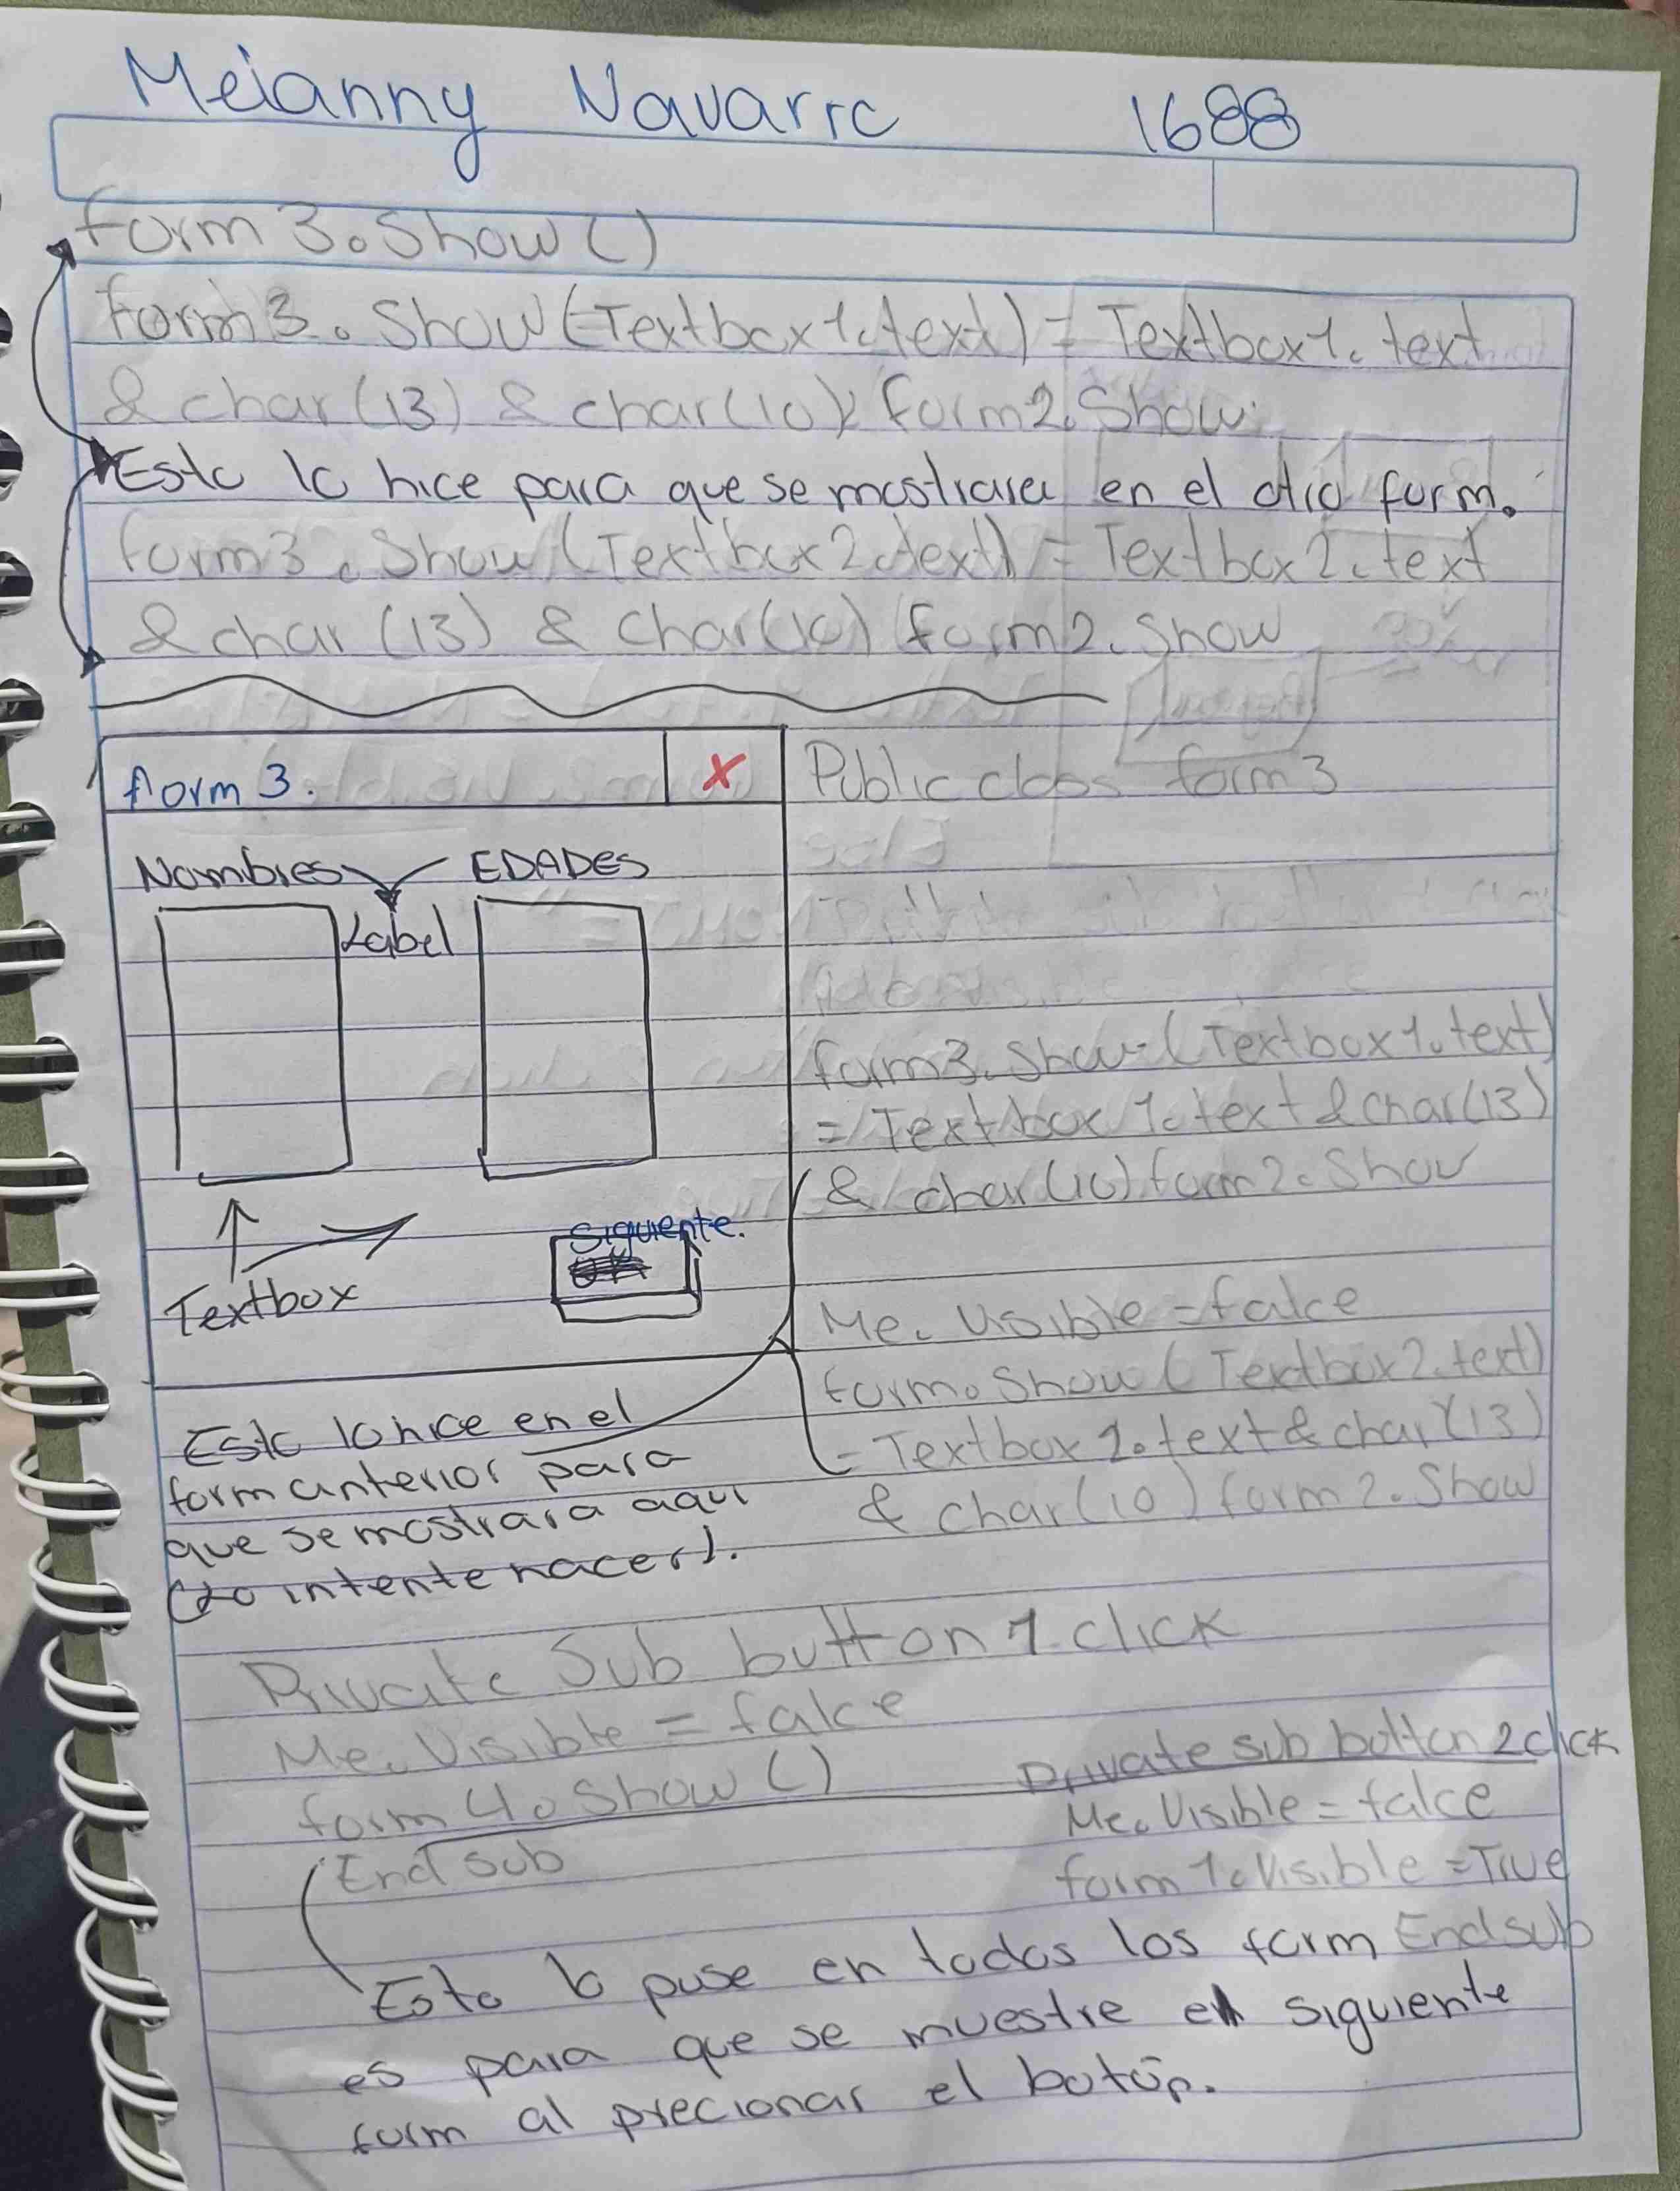 Meianny Navarro 1688
form 3.Show()
form 3. Show (Textbox1.text) = Textbox1.text
& char (13) & char(10) form2.Show
Esto lo hice para que se mostrara en el otro form.
form3.Show (Textbox2.text) = Textbox2.text
& char (13) & char(10) form2.Show
form 3.
X
Nombres EDADES
Label
Textbox
Siguiente.
Public class form3
form3.Show (Textbox1.text)
= Textbox 1.text & char(13)
& char (10) form2.Show
Me. Visible = falce
form.Show (Textbox2.text)
= Textbox 2.text & char (13)
& char (10) form 2. Show
Esto lo hice en el
form anterior para
que se mostrara aqui
(lo intente hacer).
Private Sub button 1 click
Me. Visible = falce
form 4. Show ()
End sub
Private sub button 2 click
Me. Visible = falce
form 1. Visible = True
End sub
Esto lo puse en todos los form
es para que se muestre el siguiente
form al precionar el botón.